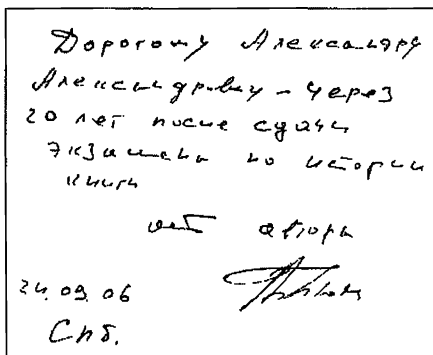 Дорогому Александру
Александровичу – через
20 лет после сдачи
экзамена по истории
книги
от автора
24.09.06
Спб.